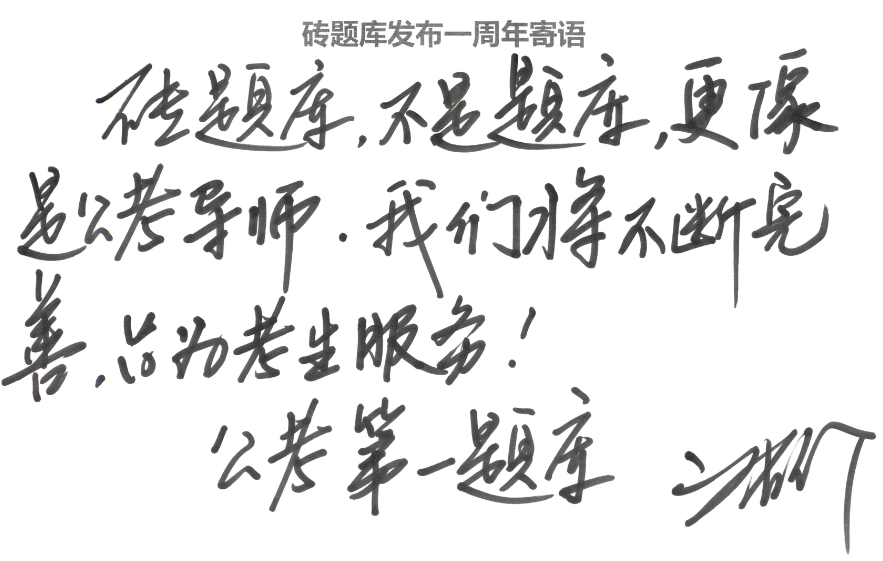 砖题库发布一周年寄语
砖题库,不是题库,更像
是公考导师.我们将不断完
善,只为考生服务!
公考第一题库